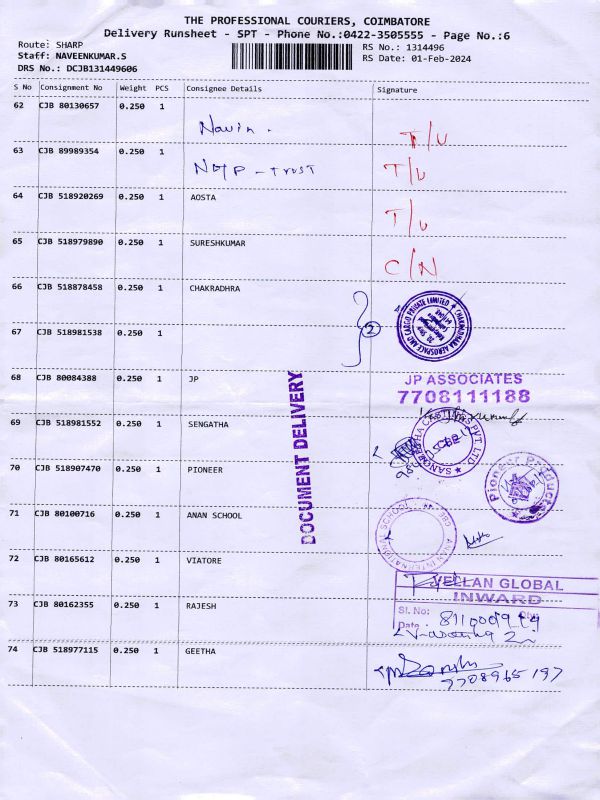 THE PROFESSIONAL COURIERS, COIMBATORE
Delivery Runsheet - SPT - Phone No.:0422-3505555 - Page No.:6
Route: SHARP
Staff: NAVEENKUMAR.S
DRS No.: DCJB131449606
RS No.: 1314496
RS Date: 01-Feb-2024
S No Consignment No Weight PCS Consignee Details Signature
62 CJB 80130657 0.250 1
Navin. T/U
63 CJB 89989354 0.250 1
Trust T/U
64 CJB 518920269 0.250 1 AOSTA
T/U
65 CJB 518979890 0.250 1 SURESHKUMAR
C/N
66 CJB 518878458 0.250 1 CHAKRADHRA
CHAKRADHARA AEROSPACE AND CARGO PRIVATE LIMITED
2
67 CJB 518981538 0.250 1
68 CJB 80084388 0.250 1 JP
JP ASSOCIATES
7708111188
DOCUMENT DELIVERY
69 CJB 518981552 0.250 1 SENGATHA
CASTINGS PVT. LTD.
70 CJB 518907470 0.250 1 PIONEER
Pioneer Products
71 CJB 80100716 0.250 1 ANAN SCHOOL
ANAN INTERNATIONAL SCHOOL
72 CJB 80165612 0.250 1 VIATORE
VELLAN GLOBAL
INWARD
73 CJB 80162355 0.250 1 RAJESH
Sl. No:
Date
74 CJB 518977115 0.250 1 GEETHA
7708965197